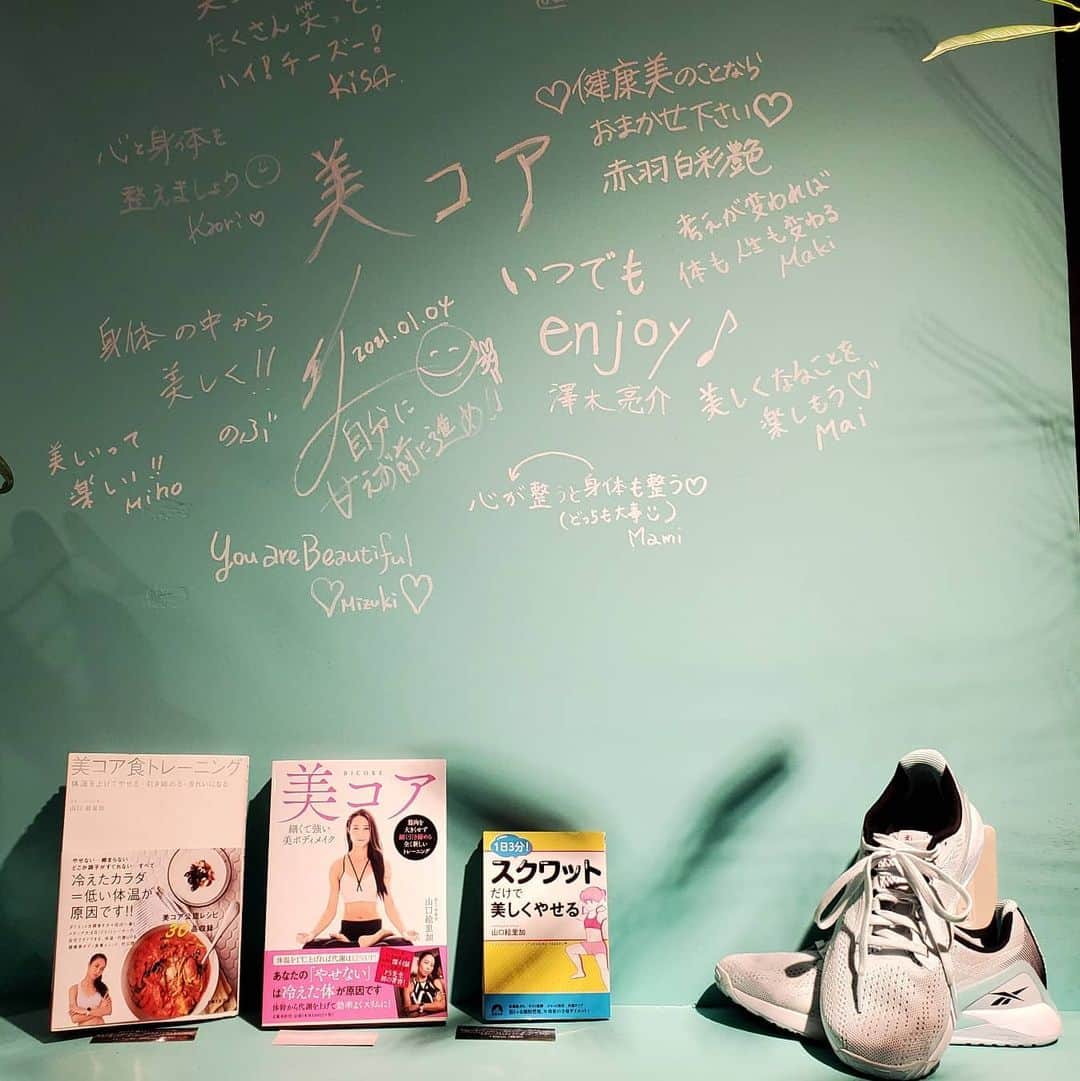 たくさん笑って!
ハイ!チーズー!
KISA
♡健康美のことなら
おまかせ下さい♡
赤羽白彩艶
心と身体を
整えましょう
Kaori♡
美コア
考えが変われば
体も人生も変わる
Maki
いつでも
enjoy♪
澤木亮介
2021.01.04
自分に
甘えず前に進め!!
身体の中から
美しく!!
のぶ
美しくなることを
楽しもう♡
Mai
美しいって
楽しい!!
Miho
心が整うと身体も整う♡
(どっちも大事)
Mami
You are Beautiful
♡Mizuki♡
美コア食トレーニング
体温を上げてやせる・引き締める・きれいになる
山口絵里加
やせない・締まらない
どこか調子がすぐれない…すべて
冷えたカラダ
=低い体温が
原因です!!
美コア公認レシピ
30品収録
BICORE
美コア
細くて強い
美ボディメイク
筋肉を
大きくせず
細く引き締める
全く新しい
トレーニング
山口絵里加
体温を1℃上げれば代謝は12%UP!
あなたの「やせない」
は冷えた体が原因です
体幹から代謝を上げて効率よくスリムに!
1日3分!
スクワット
だけで
美しくやせる
山口絵里加
Reebok